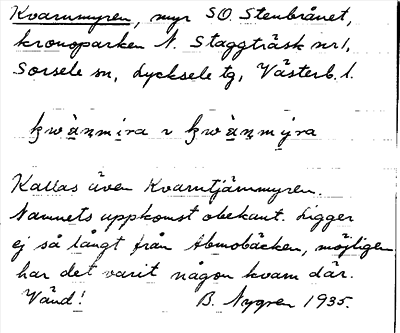 Kvarnmyren, myr SO. Stenbrånet,
kronoparken N. Staggträsk nr 1,
Sorsele sn, Lycksele tg, Västerb. l.
Kallas även Kvarntjärnmyren.
Namnets uppkomst obekant. Ligger
ej så långt från Abmobäcken, möjligen
har det varit någon kvarn där.
Vänd! B. Nygren 1935.